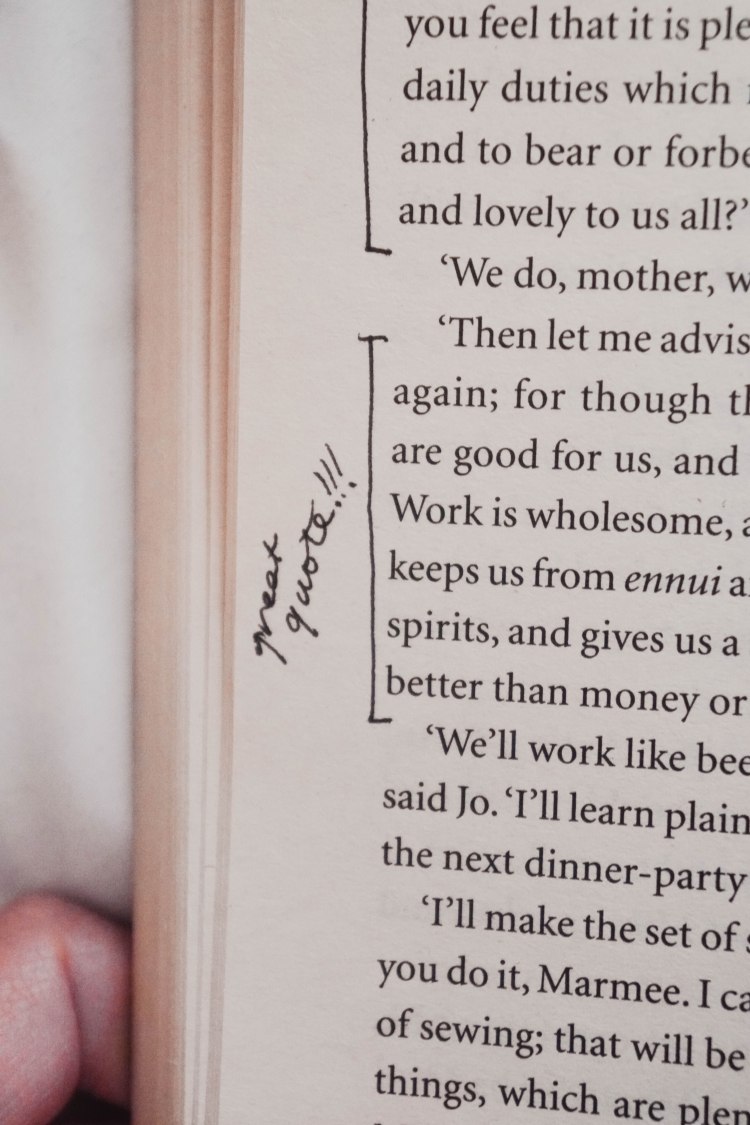 you feel that it is ple
daily duties which
and to bear or forbe
and lovely to us all?’
‘We do, mother, w
‘Then let me advis
again; for though th
are good for us, and
Work is wholesome, a
keeps us from ennui a
spirits, and gives us a
better than money or
‘We’ll work like bee
said Jo. ‘I’ll learn plain
the next dinner-party
‘I’ll make the set of s
you do it, Marmee. I ca
of sewing; that will be
things, which are plen
great
quote!!!